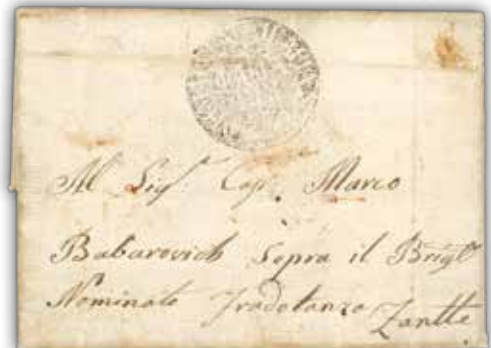 Al Sigʳ. Capⁿ. Marco
Babarovich Sopra il Brigᵗ
Nominato Zantte